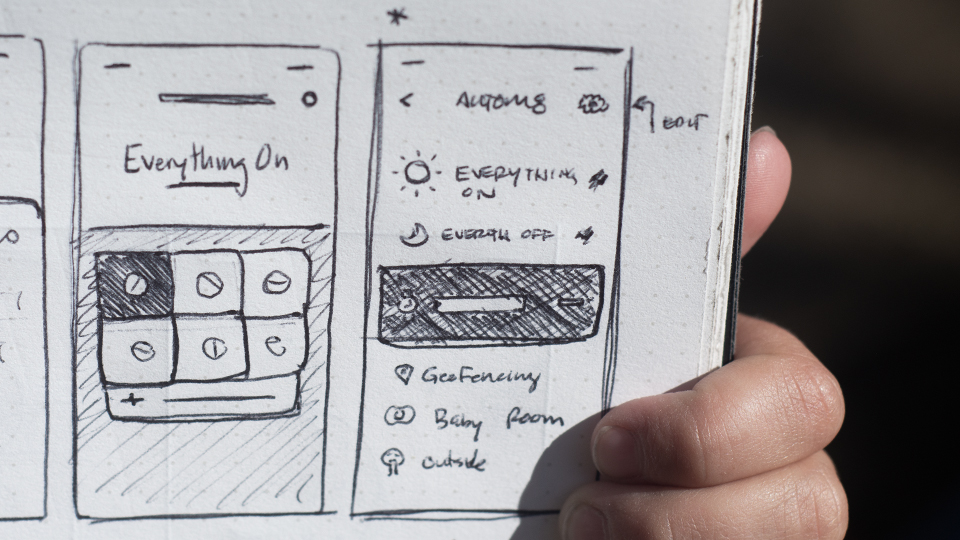 *
Everything On
< AUTOMS
EDIT
EVERYTHING
ON
OFF
GeoFencing
Baby Room
outside